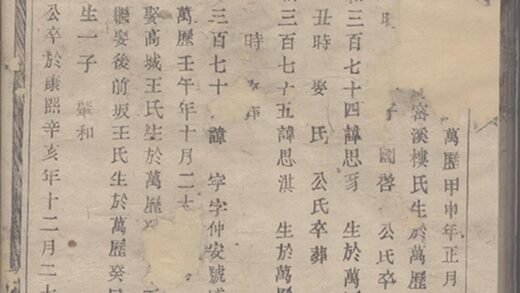 萬歷甲申年正月
窰溪樓氏生於萬歷
子 國啓 公氏卒
三百七十四諱思 生於萬
丑時娶 氏 公氏卒葬
三百七十五諱思淇 生於萬
時
三百七十 諱 字仲安號
萬歷壬午年十月二
娶高城王氏生於萬歷
繼娶後前坂王氏生於萬歷癸
生一子 肇和
公卒於康熙辛亥年十二月二十